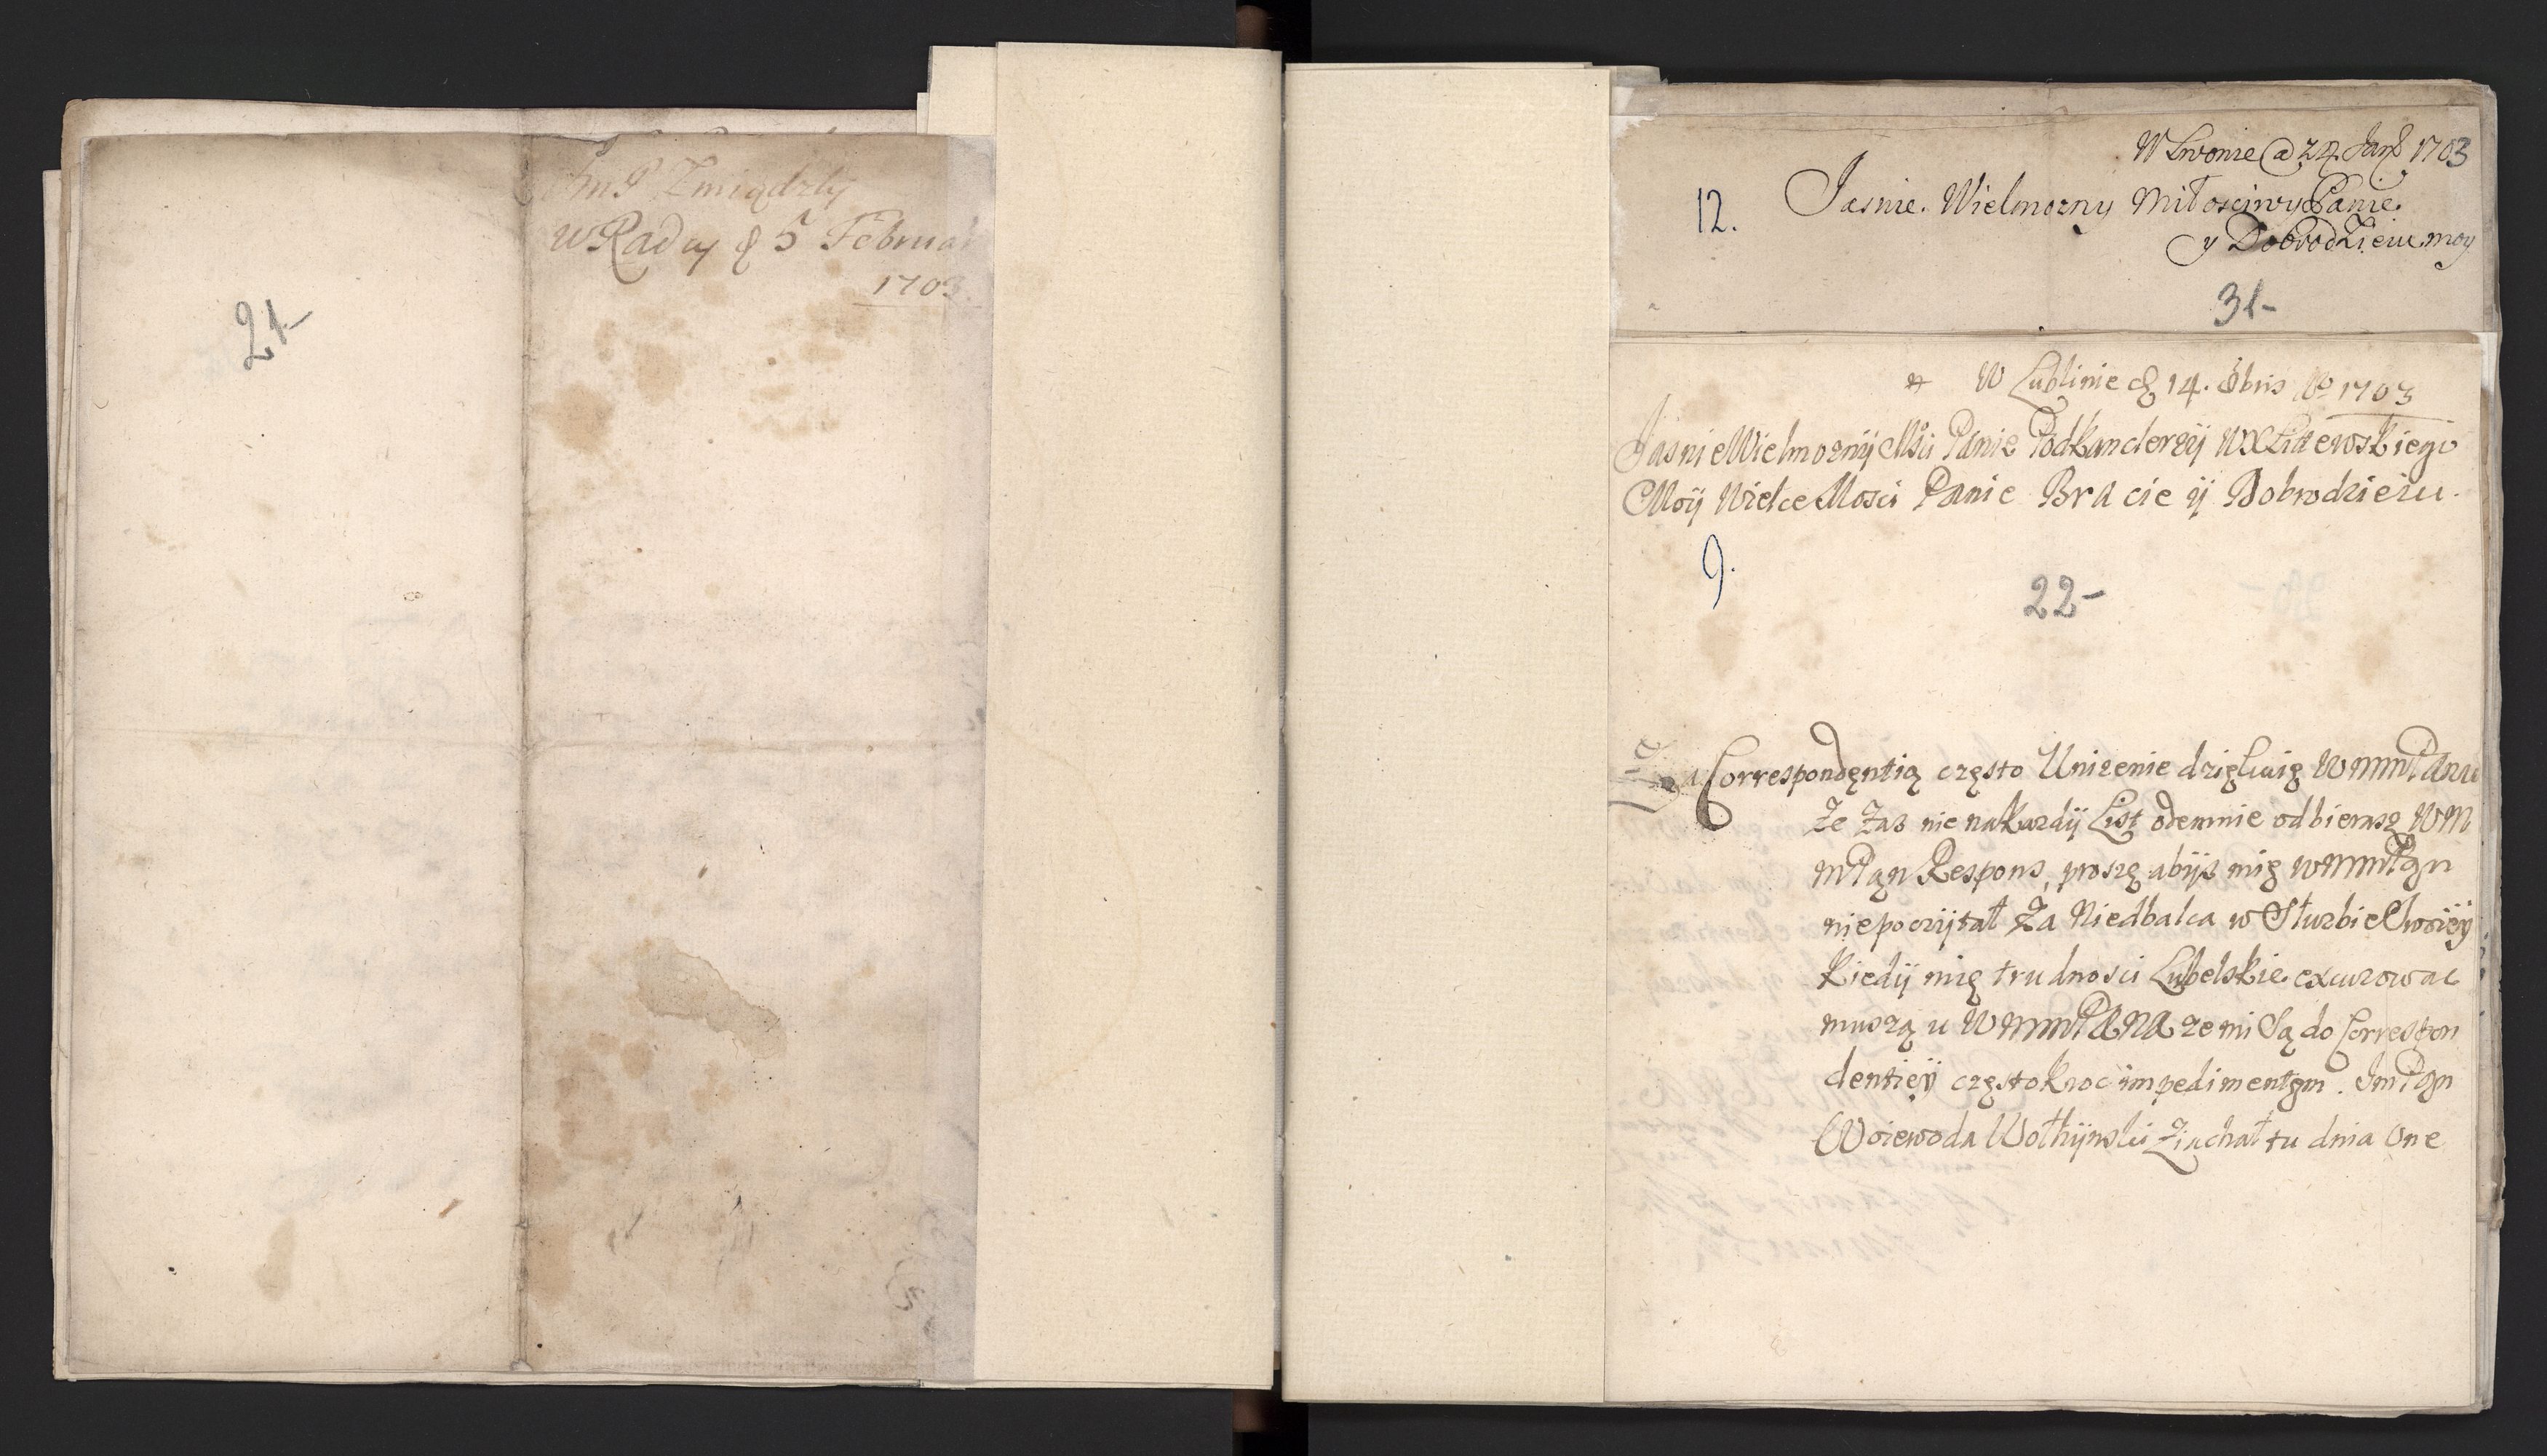 21-
ImP Zmiądzky
w Rad ay d 5 Februar
1703
W Lwowie d 24 Jan 1703
12.
Jasnie Wielmozny Miłosciwy Panie
y Dobrodzieiu moy
31-
W Lublinie d 14. 8bris Ao 1703
Jasnie Wielmozny Mści Panie Podkanclerzÿ WXLittewskiego
Moÿ Wielce Mosci Panie Bracie ÿ Dobrodzieiu.
9.
22-
Za Correspondentią często Unizenie dzięKuię WMMPanu
Ze Zas nie na Kazdÿ List odemnie odbierasz WM
MPan Respons, proszę abÿs mię WMMPan
nie poczÿtał Za Niedbalca w Słuzbie Swoieÿ
Kiedÿ mię trudnosci Lubelskie excuzowac
muszą u WMMPANA ze mi Są do Correspon
dentieÿ częstoKroc impedimentem. ImPan
Woiewoda Wołhÿnski Ziachał tu dnia One